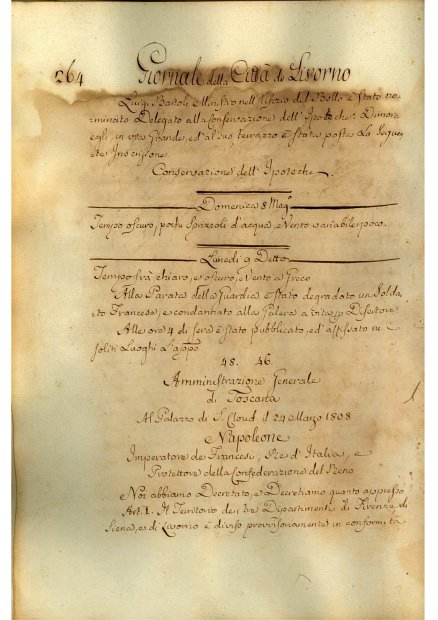 264 Giornale della Città di Livorno
Luigi Bartoli Ministro nell'Ufizio del Bollo è stato no-
minato Delegato alla Conservazione dell'Ipoteche. Dimora
egli in via Grande, ed al suo terrazzo è stata posta la segue-
nte Inscrizione.
Conservazione dell'Ipoteche
Domenica 8 Magº
Tempo oscuro, pochi sprizzoli d'acqua, e Vento variabile poco.
Lunedì 9 Detto
Tempo frà chiaro, e oscuro, e Vento a Greco
Alla Parata della Guardia è stato degradato un Solda-
to Francese, e condannato alla Galera a vita p. Disertore
Alle ore 4 di sera è stato pubblicato, ed affissato ne
soliti Luoghi l'apppo
48. 46.
Amministrazione Generale
di Toscana
Al Palazzo di S. Cloud il 24 Marzo 1808
Napoleone
Imperatore de Francesi, Re d'Italia, e
Protettore della Confederazione del Reno
Noi abbiamo Decretato, e Decretiamo quanto appresso
Art. 1. Il Territorio de i tre Dipartimenti di Firenze, di
Siena, e di Livorno è diviso provvisionamente in conformità